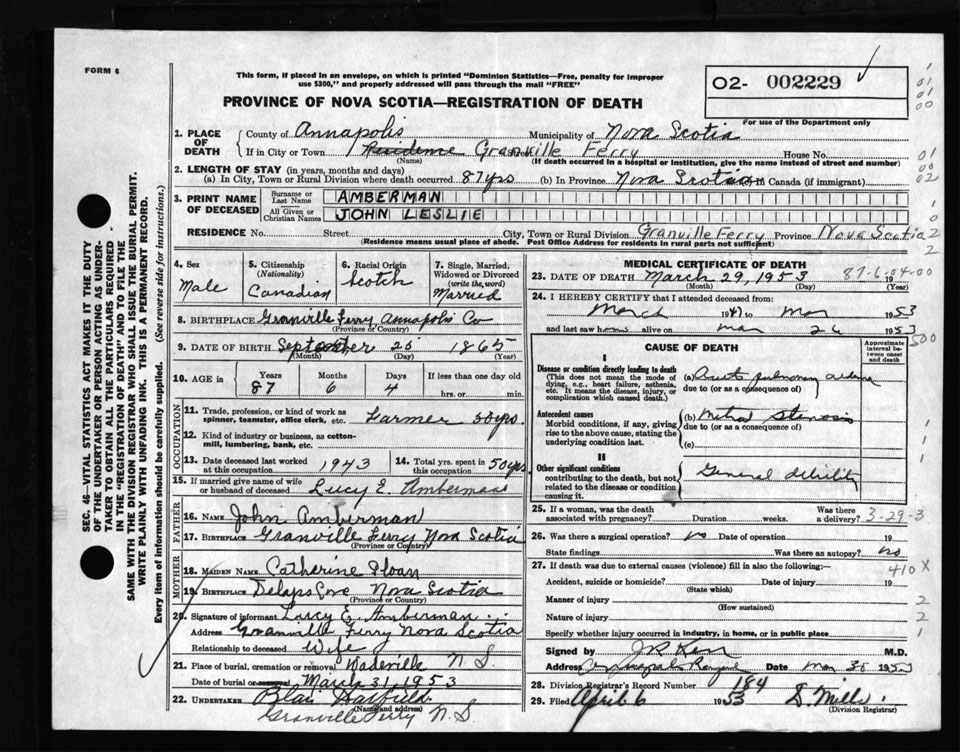 FORM 6
This form, if placed in an envelope, on which is printed "Dominion Statistics—Free, penalty for improper
use $300," and properly addressed will pass through the mail "FREE"
O2- 002229
For use of the Department only
PROVINCE OF NOVA SCOTIA—REGISTRATION OF DEATH
1. PLACE OF DEATH County of Annapolis Municipality of Nova Scotia
If in City or Town Residence Granville Ferry House No.
(Name) (If death occurred in a hospital or institution, give the name instead of street and number)
2. LENGTH OF STAY (in years, months and days)
(a) In City, Town or Rural Division where death occurred 87 yrs (b) In Province Nova Scotia In Canada (if immigrant)
3. PRINT NAME OF DECEASED Surname or Last Name AMBERMAN
All Given or Christian Names JOHN LESLIE
RESIDENCE No. Street City, Town or Rural Division Granville Ferry Province Nova Scotia
(Residence means usual place of abode. Post Office Address for residents in rural parts not sufficient)
4. Sex Male
5. Citizenship (Nationality) Canadian
6. Racial Origin Scotch
7. Single, Married, Widowed or Divorced (write the word) Married
8. BIRTHPLACE Granville Ferry Annapolis Co
(Province or Country)
9. DATE OF BIRTH September 25 1865
(Month) (Day) (Year)
10. AGE in Years Months Days If less than one day old
87 6 4 hrs. or min.
OCCUPATION
11. Trade, profession, or kind of work as spinner, teamster, office clerk, etc. Farmer 50 yrs.
12. Kind of industry or business, as cotton-mill, lumbering, bank, etc.
13. Date deceased last worked at this occupation 1943
14. Total yrs. spent in this occupation 50 yrs
15. If married give name of wife or husband of deceased Lucy E. Amberman
FATHER
16. NAME John Amberman
17. BIRTHPLACE Granville Ferry Nova Scotia
(Province or Country)
MOTHER
18. MAIDEN NAME Catherine Sloan
19. BIRTHPLACE Delaps Cove Nova Scotia
(Province or Country)
20. Signature of informant Lucy E. Amberman
Address Granville Ferry Nova Scotia
Relationship to deceased Wife
21. Place of burial, cremation or removal Wadeville N.S.
Date of burial or removal March 31, 1953
22. UNDERTAKER Blair
Granville Ferry N.S.
MEDICAL CERTIFICATE OF DEATH
23. DATE OF DEATH March 29, 1953 87-6-04-00
(Month) (Day) 19 (Year)
24. I HEREBY CERTIFY that I attended deceased from:
March 1947 to Mar 1953
and last saw him alive on Mar 26 1953
500
CAUSE OF DEATH
Approximate interval between onset and death
I
Disease or condition directly leading to death
(This does not mean the mode of dying, e.g., heart failure, asthenia, etc. It means the disease, injury, or complication which caused death.)
(a) Acute pulmonary edema
due to (or as a consequence of)
Antecedent causes
Morbid conditions, if any, giving rise to the above cause, stating the underlying condition last.
(b) Mitral Stenosis
due to (or as a consequence of)
(c)
II
Other significant conditions contributing to the death, but not related to the disease or condition causing it.
General debility
25. If a woman, was the death associated with pregnancy? Duration weeks. Was there a delivery? 3-29-3
26. Was there a surgical operation? no Date of operation 19
State findings Was there an autopsy? no
27. If death was due to external causes (violence) fill in also the following:— 410 X
Accident, suicide or homicide? Date of injury 19
(State which)
Manner of injury
(How sustained)
Nature of injury
Specify whether injury occurred in industry, in home, or in public place
Signed by M.D.
Address Annapolis Royal Date Mar 30 1953
28. Division Registrar's Record Number 184
29. Filed April 6 1953
(Division Registrar)
SEC. 46—VITAL STATISTICS ACT MAKES IT THE DUTY
OF THE UNDERTAKER OR PERSON ACTING AS UNDER-
TAKER TO OBTAIN ALL THE PARTICULARS REQUIRED
IN THE "REGISTRATION OF DEATH" AND TO FILE THE
SAME WITH THE DIVISION REGISTRAR WHO SHALL ISSUE THE BURIAL PERMIT.
WRITE PLAINLY WITH UNFADING INK. THIS IS A PERMANENT RECORD.
Every item of information should be carefully supplied. (See reverse side for instructions.)